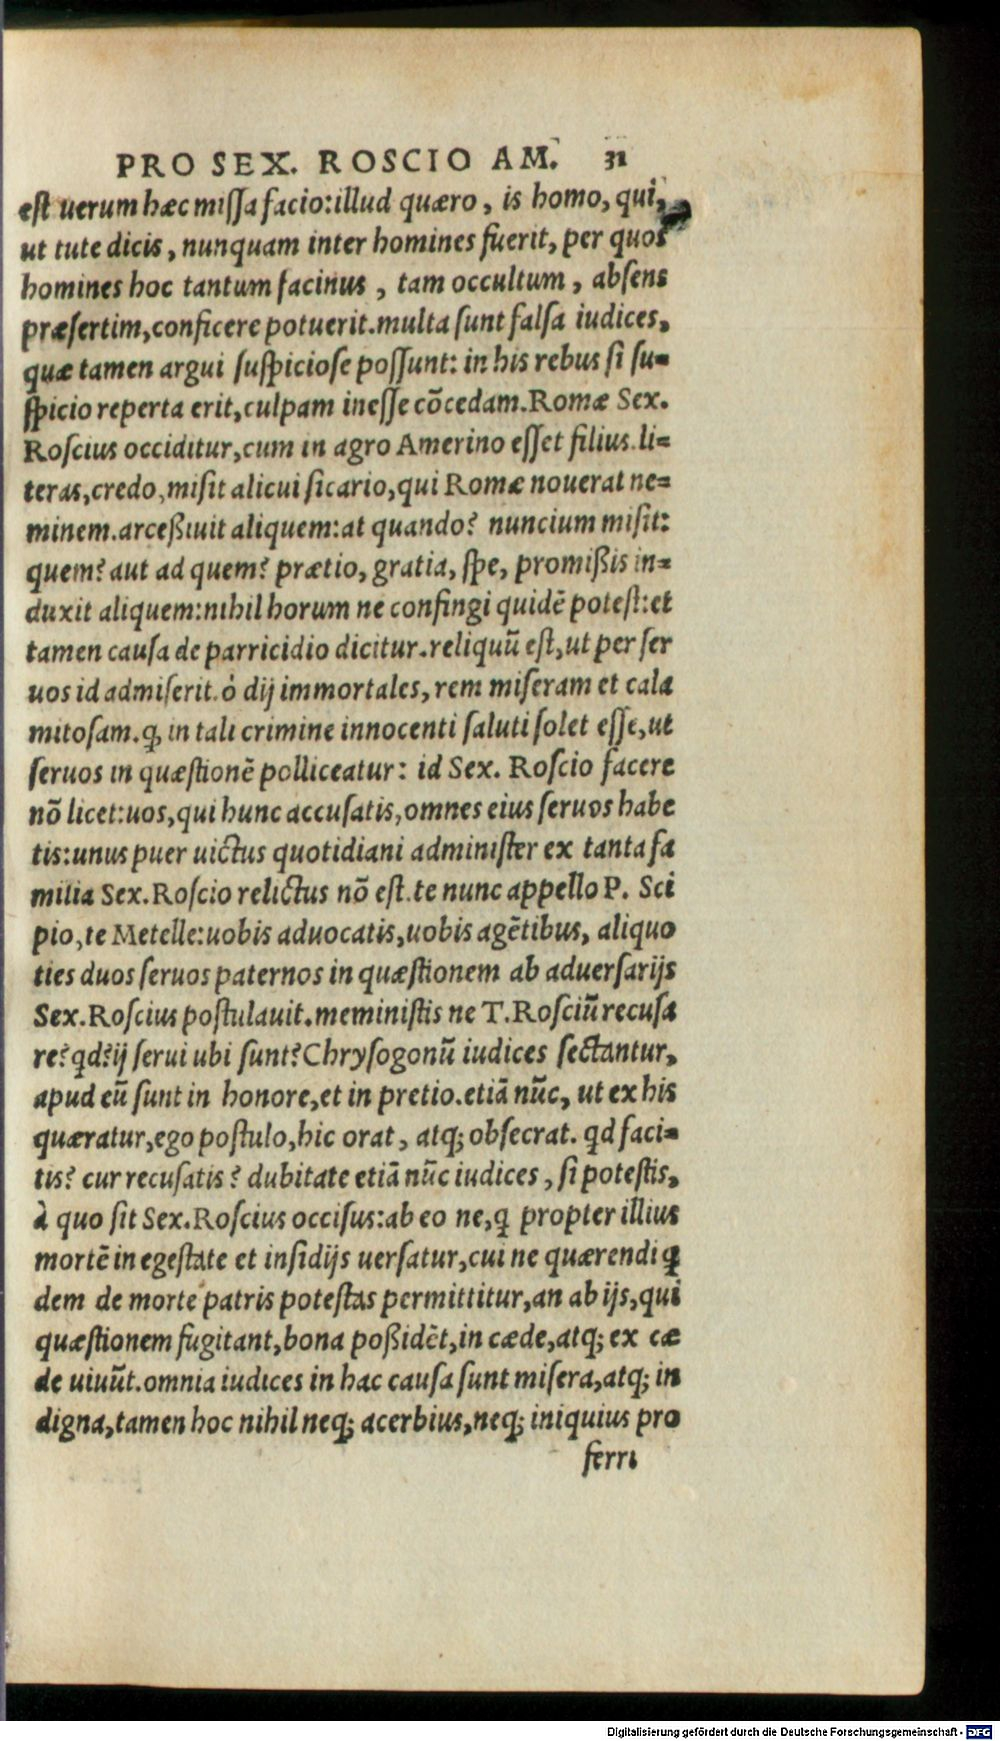 PRO SEX. ROSCIO AM. 31
est uerum hæc missa facio:illud quæro, is homo, qui,
ut tute dicis, nunquam inter homines fuerit, per quos
homines hoc tantum facinus, tam occultum, absens
præsertim, conficere potuerit.multa sunt falsa iudices,
quæ tamen argui suspiciose possunt: in his rebus si su=
spicio reperta erit, culpam inesse cõcedam.Romæ Sex.
Roscius occiditur, cum in agro Amerino esset filius.li=
teras, credo, misit alicui sicario, qui Romæ nouerat ne=
minem.arceßiuit aliquem:at quando? nuncium misit:
quem? aut ad quem? prætio, gratia, spe, promißis in=
duxit aliquem:nihil horum ne confingi quidẽ potest:et
tamen causa de parricidio dicitur.reliquũ est, ut per ser
uos id admiserit.ò dij immortales, rem miseram et cala
mitosam.ꝙ in tali crimine innocenti saluti solet esse, ut
seruos in quæstionẽ polliceatur: id Sex. Roscio facere
nõ licet:uos, qui hunc accusatis, omnes eius seruos habe
tis:unus puer uictus quotidiani administer ex tanta fa
milia Sex.Roscio relictus nõ est.te nunc appello P. Sci
pio, te Metelle:uobis aduocatis, uobis agẽtibus, aliquo
ties duos seruos paternos in quæstionem ab aduersarijs
Sex.Roscius postulauit.meministis ne T.Rosciũ recusa
re?qd?ij serui ubi sunt?Chrysogonũ iudices sectantur,
apud eũ sunt in honore, et in pretio.etiã nũc, ut ex his
quæratur, ego postulo, hic orat, atq; obsecrat. qd faci=
tis? cur recusatis? dubitate etiã nũc iudices, si potestis,
à quo sit Sex.Roscius occisus:ab eo ne, ꝗ propter illius
mortẽ in egestate et insidijs uersatur, cui ne quærendi ꝗ
dem de morte patris potestas permittitur, an ab ijs, qui
quæstionem fugitant, bona poßidẽt, in cæde, atq; ex cæ
de uiuũt.omnia iudices in hac causa sunt misera, atq; in
digna, tamen hoc nihil neq; acerbius, neq; iniquius pro
ferri
Digitalisierung gefördert durch die Deutsche Forschungsgemeinschaft - DFG